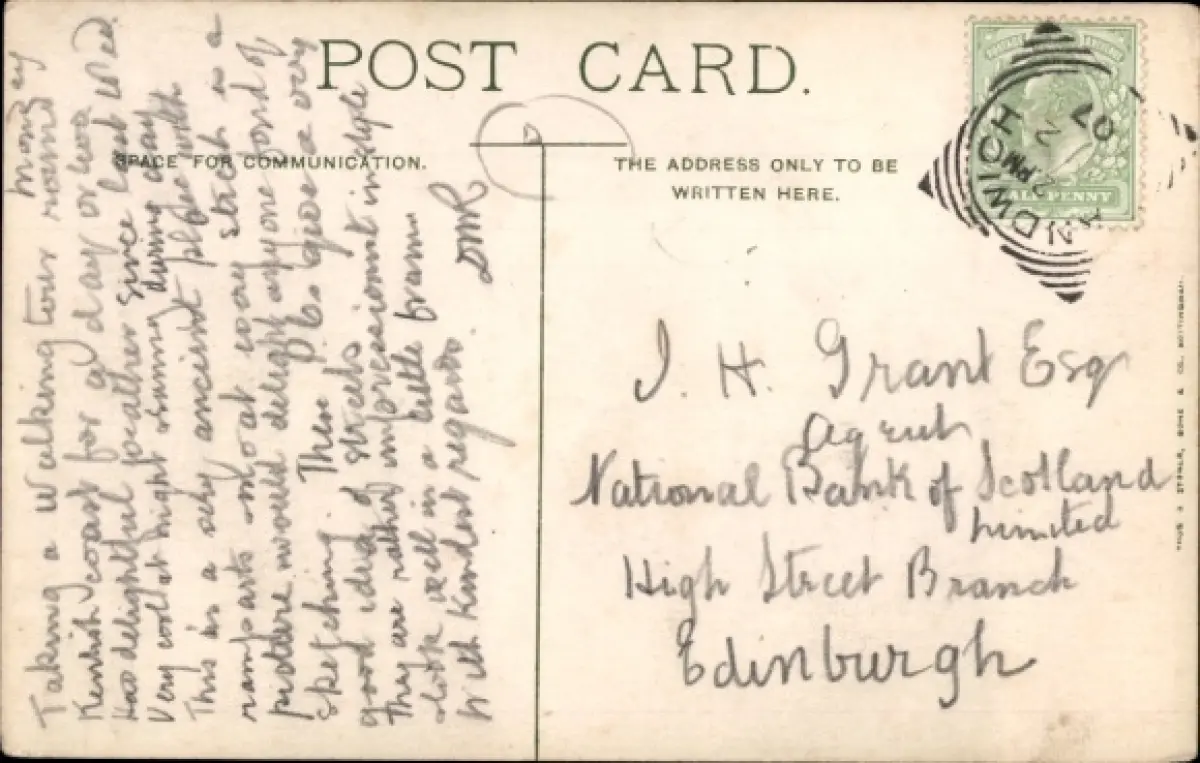 POST CARD.
SPACE FOR COMMUNICATION.
THE ADDRESS ONLY TO BE
WRITTEN HERE.
HALF PENNY
SANDWICH
2 PM
07
Taking a walking tour round
Kentish coast for a day or two
Had delightful weather since last Wed.
Very cool at night sunny during day
This is a very ancient place with
ramparts moat every street is a
picture would delight anyone fond of
sketching. These P.Cs give a very
good idea of streets
They are rather impressionist in style
look well in a little frame
With Kindest regards.
DMR
J. H. Grant Esq
Agent
National Bank of Scotland
Limited
High Street Branch
Edinburgh